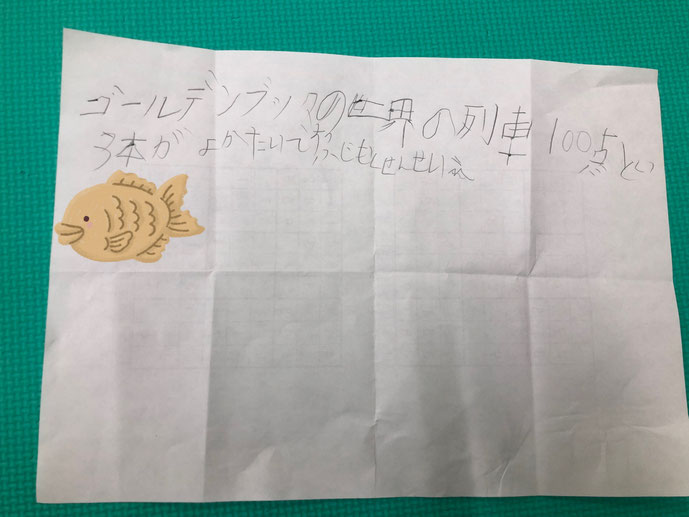 ゴールデンブックの世界の列車100点とい
う本がよかたいですふじもとせんせいえ